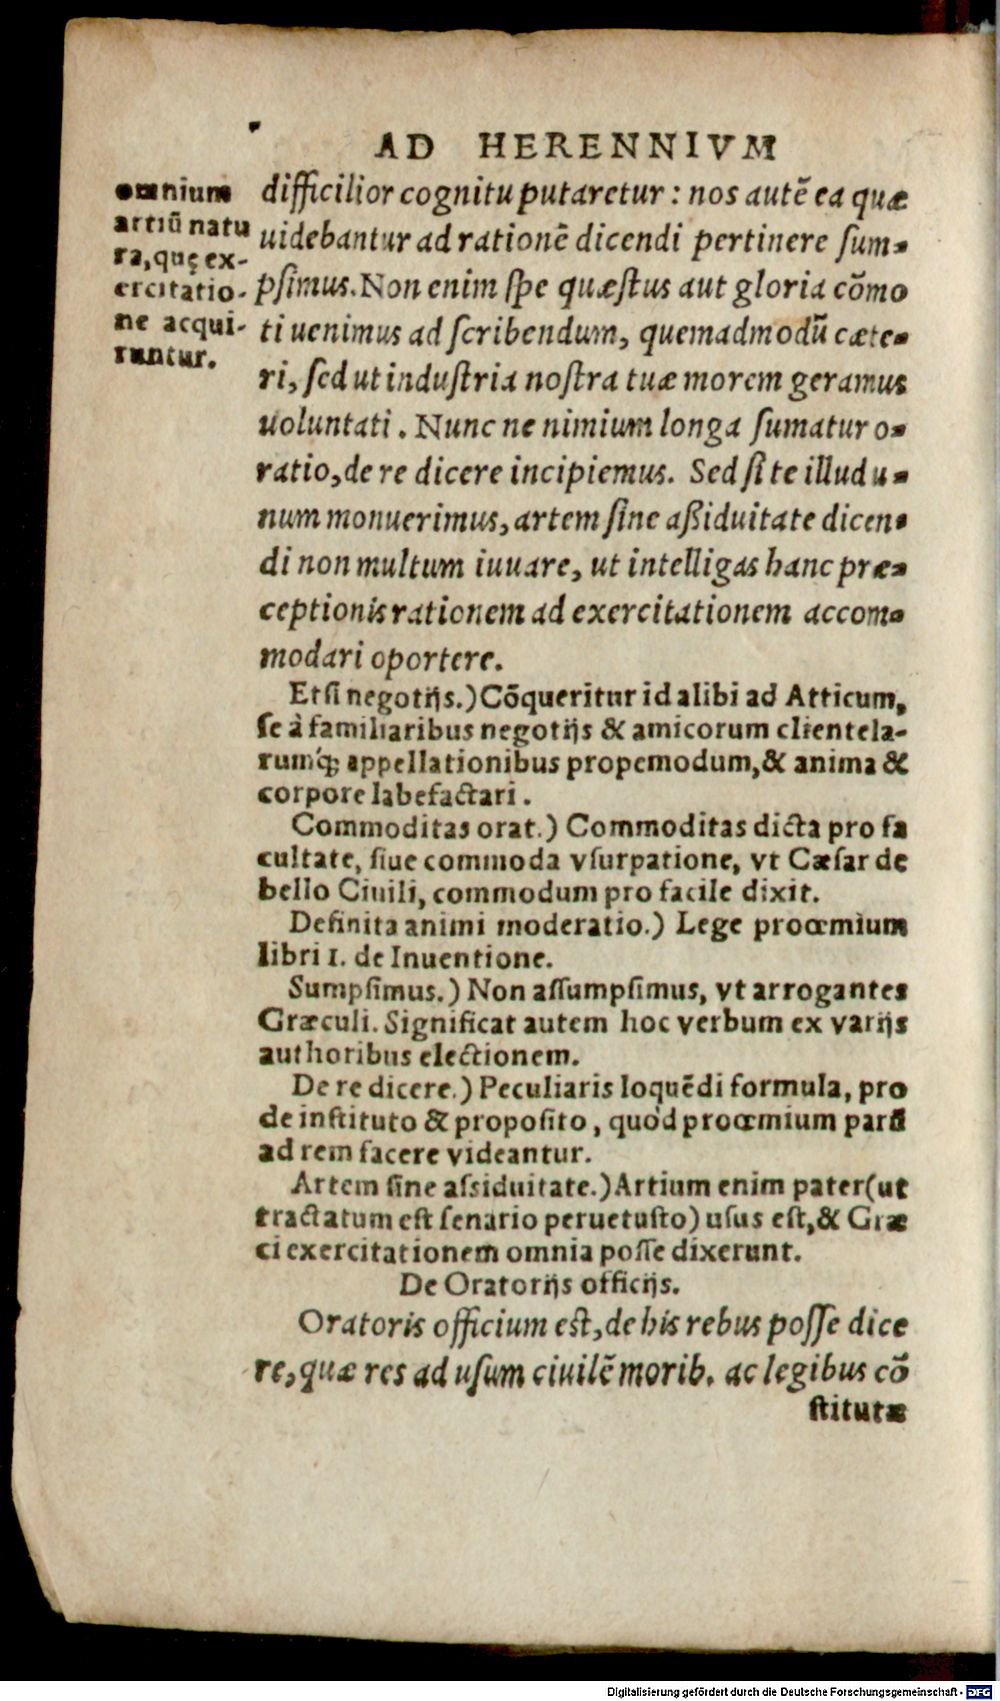 AD HERENNIVM
omnium
artiũ natu
ra, quę ex-
ercitatio-
ne acqui-
runtur.
difficilior cognitu putaretur: nos autē ea quæ
uidebantur ad rationē dicendi pertinere ſum-
pſimus. Non enim ſpe quæſtus aut gloria cōmo
ti uenimus ad ſcribendum, quemadmodũ cæte-
ri, ſed ut induſtria noſtra tuæ morem geramus
uoluntati. Nunc ne nimium longa ſumatur o-
ratio, de re dicere incipiemus. Sed ſi te illud u-
num monuerimus, artem ſine aßiduitate dicen-
di non multum iuuare, ut intelligas hanc præ-
ceptionis rationem ad exercitationem accom-
modari oportere.
Etſi negotijs.) Cõqueritur id alibi ad Atticum,
ſe à familiaribus negotijs & amicorum clientela-
rumq́; appellationibus propemodum, & anima &
corpore labefactari.
Commoditas orat.) Commoditas dicta pro fa
cultate, ſiue commoda vſurpatione, vt Cæſar de
bello Ciuili, commodum pro facile dixit.
Definita animi moderatio.) Lege proœmium
libri 1. de Inuentione.
Sumpſimus.) Non aſſumpſimus, vt arrogantes
Græculi. Significat autem hoc verbum ex varijs
authoribus electionem.
De re dicere.) Peculiaris loquẽdi formula, pro
de inſtituto & propoſito, quòd proœmium parũ
ad rem facere videantur.
Artem ſine aſsiduitate.) Artium enim pater (ut
tractatum eſt ſenario peruetuſto) uſus eſt, & Græ
ci exercitationem omnia poſſe dixerunt.
De Oratorijs officijs.
Oratoris officium eſt, de his rebus poſſe dice
re, quæ res ad uſum ciuilē morib. ac legibus cō
ſtitutæ
Digitalisierung gefördert durch die Deutsche Forschungsgemeinschaft - DFG